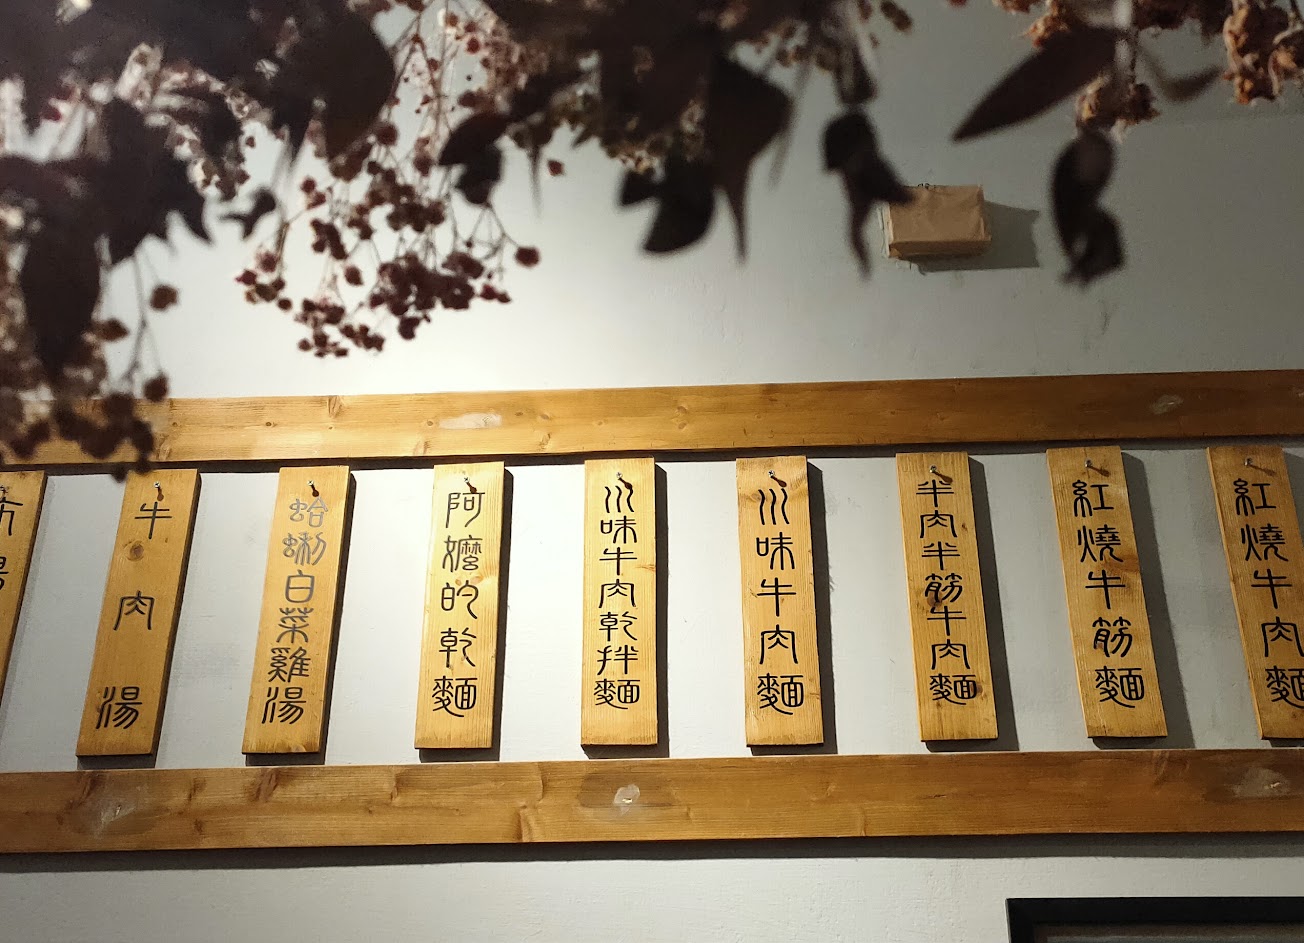 紅燒牛肉麵
紅燒牛筋麵
半肉半筋牛肉麵
川味牛肉麵
川味牛肉乾拌麵
阿嬤的乾麵
蛤蜊白菜雞湯
牛肉湯